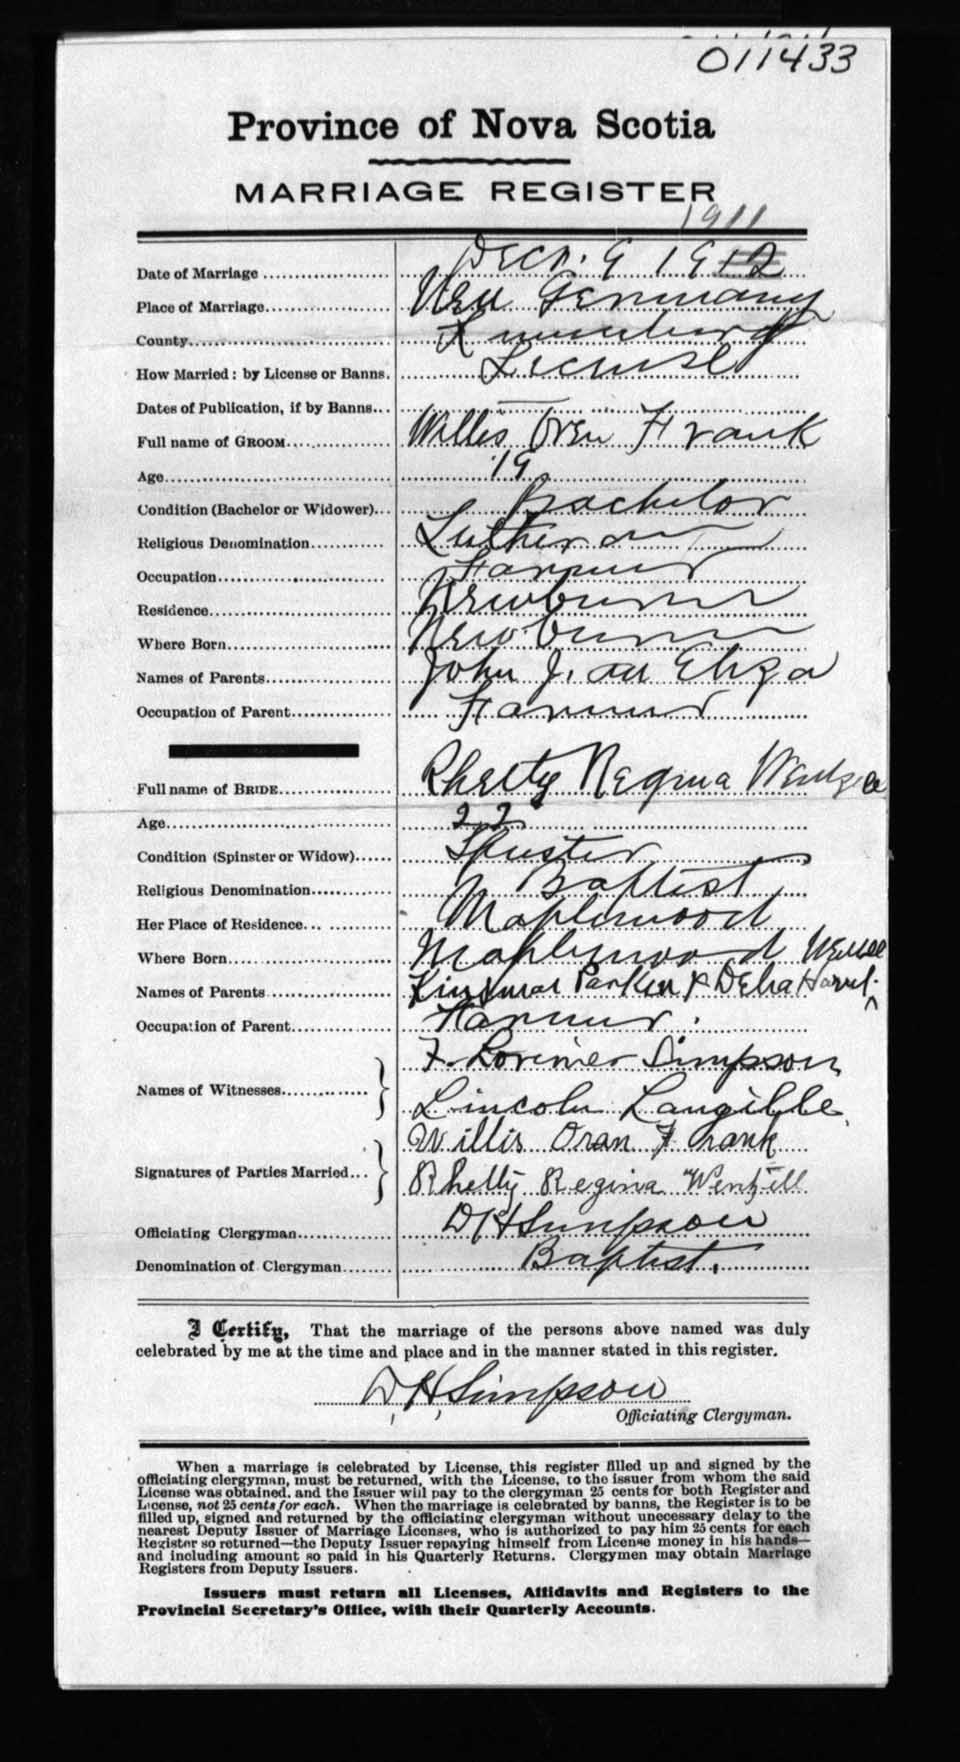 011433
Province of Nova Scotia
MARRIAGE REGISTER
1911
Date of Marriage Decr. 9 1912
Place of Marriage New Germany
County Lunenburg
How Married: by License or Banns. License
Dates of Publication, if by Banns
Full name of GROOM Willis Oren Frank
Age 19
Condition (Bachelor or Widower) Bachelor
Religious Denomination Lutheran
Occupation Farmer
Residence Newburn
Where Born Newburn
Names of Parents John J. Eliza
Occupation of Parent Farmer
Full name of BRIDE Rhetty Regina
Age 22
Condition (Spinster or Widow) Spinster
Religious Denomination Baptist
Her Place of Residence Maplewood
Where Born Maplewood
Names of Parents Parker & Delia
Occupation of Parent Farmer.
Names of Witnesses F. Lorimer Simpson
Lincoln Langille
Signatures of Parties Married Willis Oran Frank
Rhetty Regina Wentzell
Officiating Clergyman D H Simpson
Denomination of Clergyman Baptist.
I Certify, That the marriage of the persons above named was duly
celebrated by me at the time and place and in the manner stated in this register.
D, H, Simpson
Officiating Clergyman.
When a marriage is celebrated by License, this register filled up and signed by the
officiating clergyman, must be returned, with the License, to the issuer from whom the said
License was obtained, and the Issuer will pay to the clergyman 25 cents for both Register and
License, not 25 cents for each. When the marriage is celebrated by banns, the Register is to be
filled up, signed and returned by the officiating clergyman without unnecessary delay to the
nearest Deputy Issuer of Marriage Licenses, who is authorized to pay him 25 cents for each
Register so returned—the Deputy Issuer repaying himself from License money in his hands—
and including amount so paid in his Quarterly Returns. Clergymen may obtain Marriage
Registers from Deputy Issuers.
Issuers must return all Licenses, Affidavits and Registers to the
Provincial Secretary's Office, with their Quarterly Accounts.